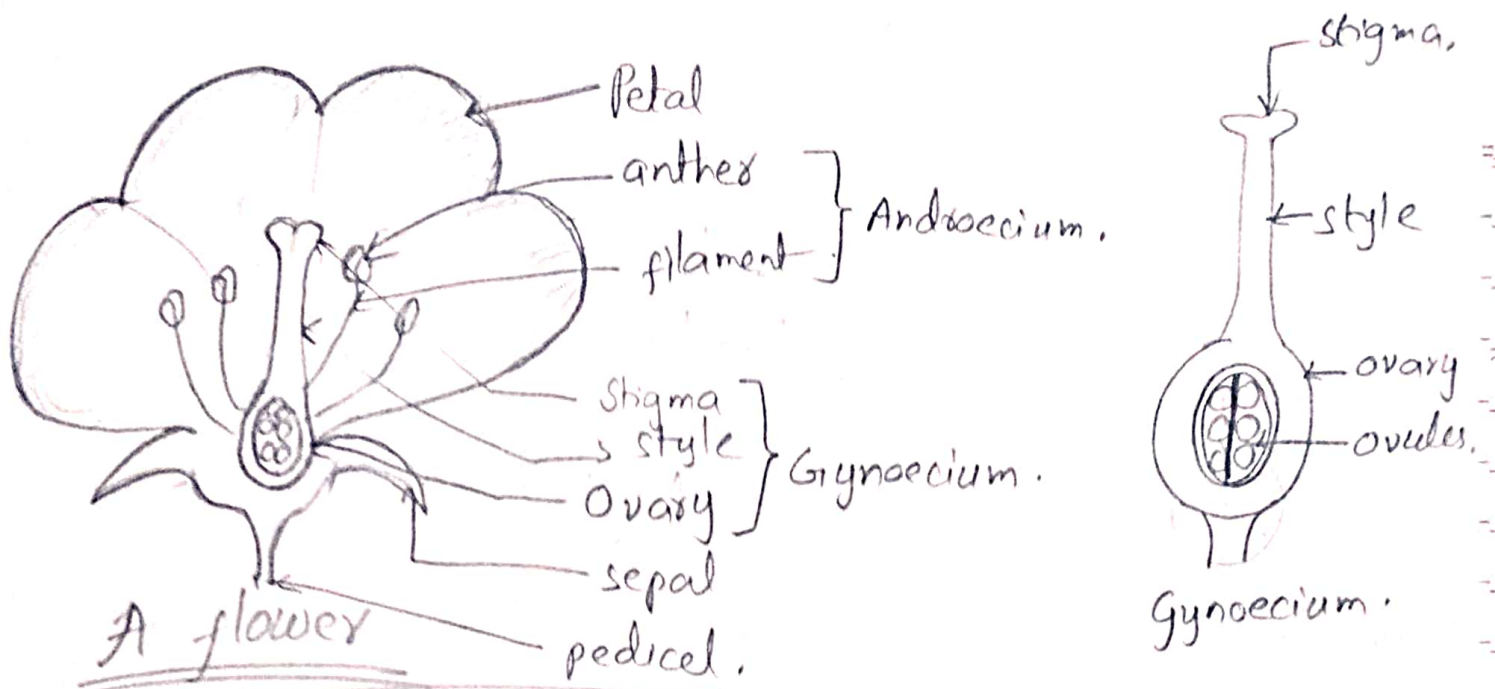 Petal
anther
filament
Androecium.
Stigma
style
Ovary
Gynoecium.
sepal
pedicel.
A flower
stigma.
style
ovary
ovules.
Gynoecium.